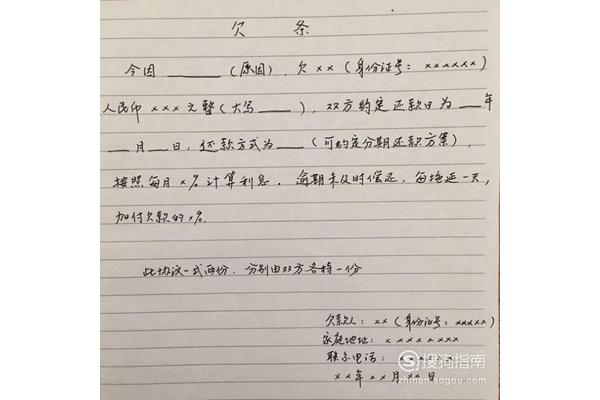 欠 条
今因____(原因),欠××(身份证号:××××××)
人民币×××元整(大写____),双方约定还款日为___年
__月__日,还款方式为___(可约定分期还款方案),
按照每月×%计算利息。逾期未及时偿还,每拖延一天,
加付欠款的×%.
此协议一式两份.分别由双方各持一份
欠款人:××(身份证号:×××××)
家庭地址:××××××××
联系电话:××××××
××年××月××日
搜狗指南
zhinan.sogou.com